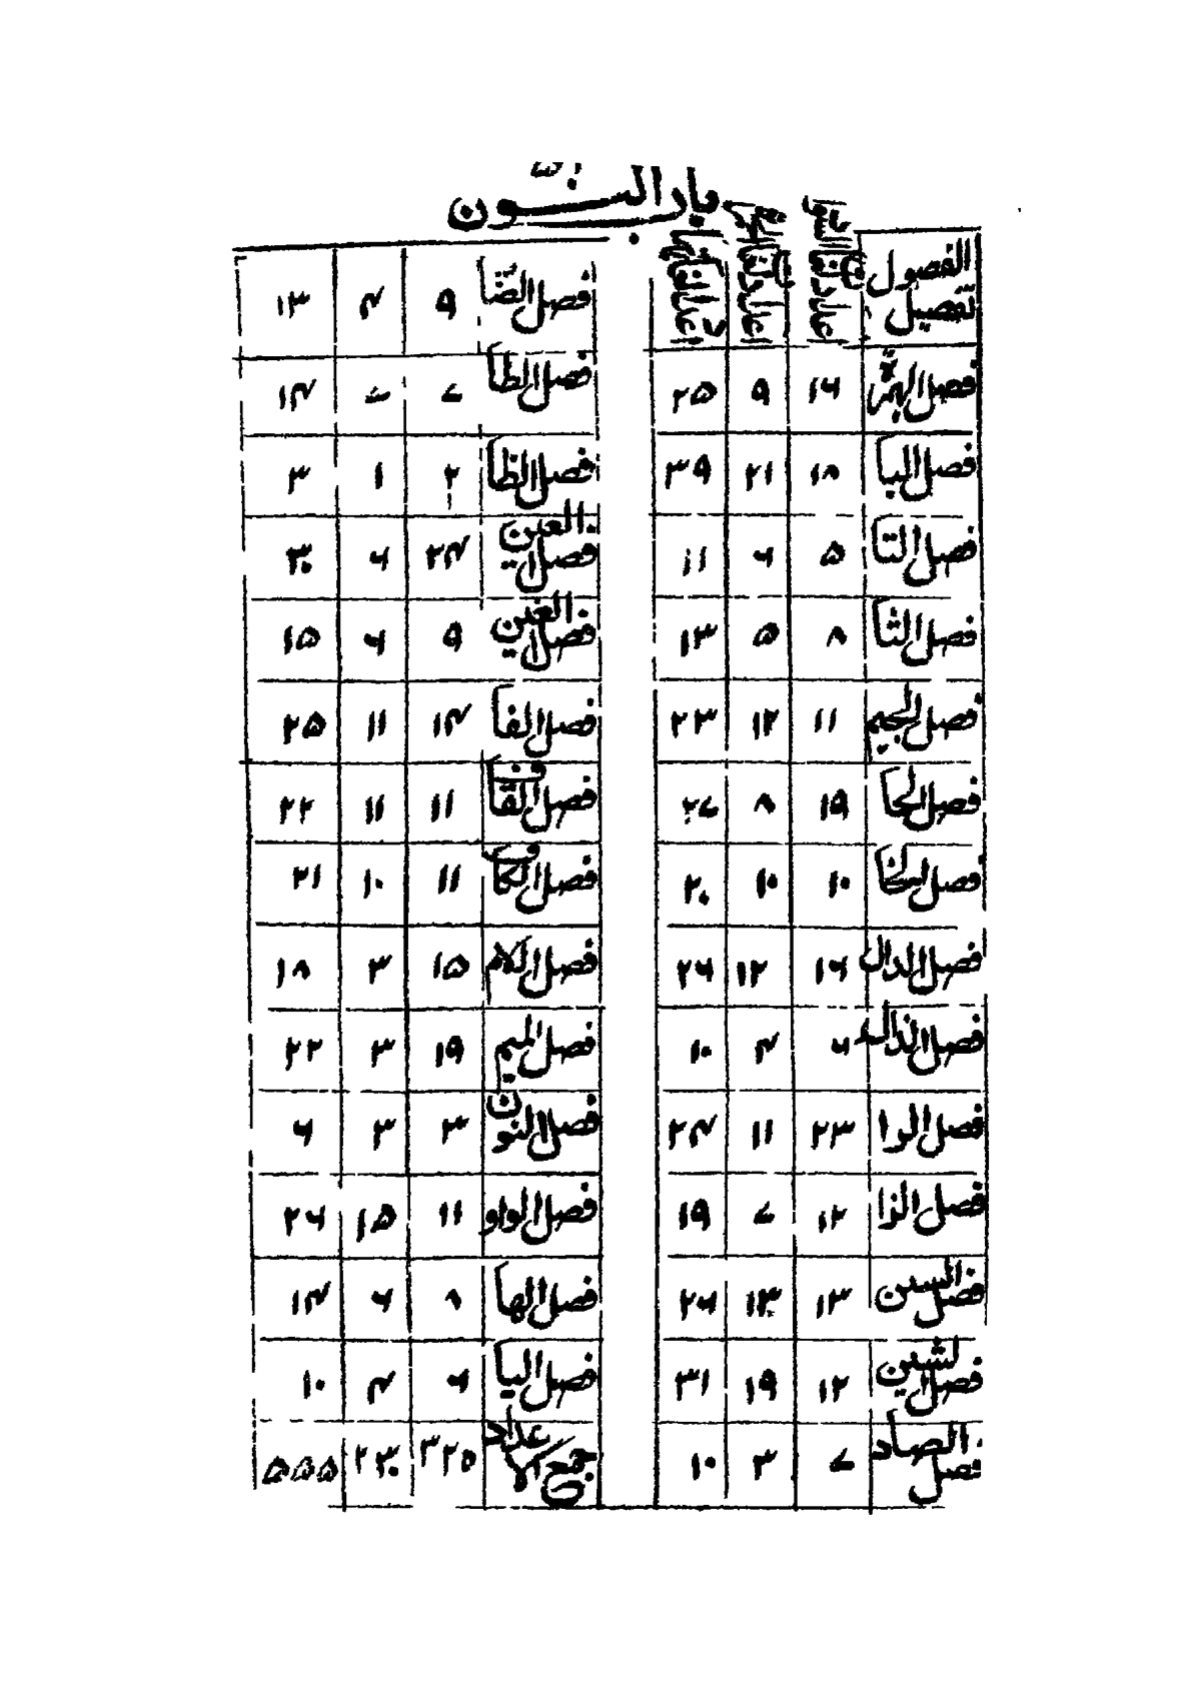 باب النون
تفصيل الفصول
فصل الهمزة ١٦ ٩ ٢٥
فصل البا ١٨ ٢١ ٣٩
فصل التا ٥ ٦ ١١
فصل الثا ٨ ٥ ١٣
فصل الجيم ١١ ١٢ ٢٣
فصل الحا ١٩ ٨ ٢٧
فصل الخا ١٠ ١٠ ٢٠
فصل الدال ١٦ ١٢ ٢٦
فصل الذال ٦ ٤ ١٠
فصل الرا ٢٣ ١١ ٢٤
فصل الزا ١٢ ٧ ١٩
فصل السين ١٣ ١٣ ٢٦
فصل الشين ١٢ ١٩ ٣١
فصل الصاد ٧ ٣ ١٠
فصل الضا ٩ ٤ ١٣
فصل الطا ٧ ٧ ١٤
فصل الظا ٢ ١ ٣
فصل العين ٢٤ ٦ ٣٠
فصل الغين ٩ ٦ ١٥
فصل الفا ١٤ ١١ ٢٥
فصل القاف ١١ ١١ ٢٢
فصل الكاف ١١ ١٠ ٢١
فصل اللام ١٥ ٣ ١٨
فصل الميم ١٩ ٣ ٢٢
فصل النون ٣ ٣ ٦
فصل الواو ١١ ١٥ ٢٦
فصل الها ٨ ٦ ١٤
فصل اليا ٦ ٤ ١٠
جمع الاعداد ٣٢٥ ٢٣٠ ٥٥٥